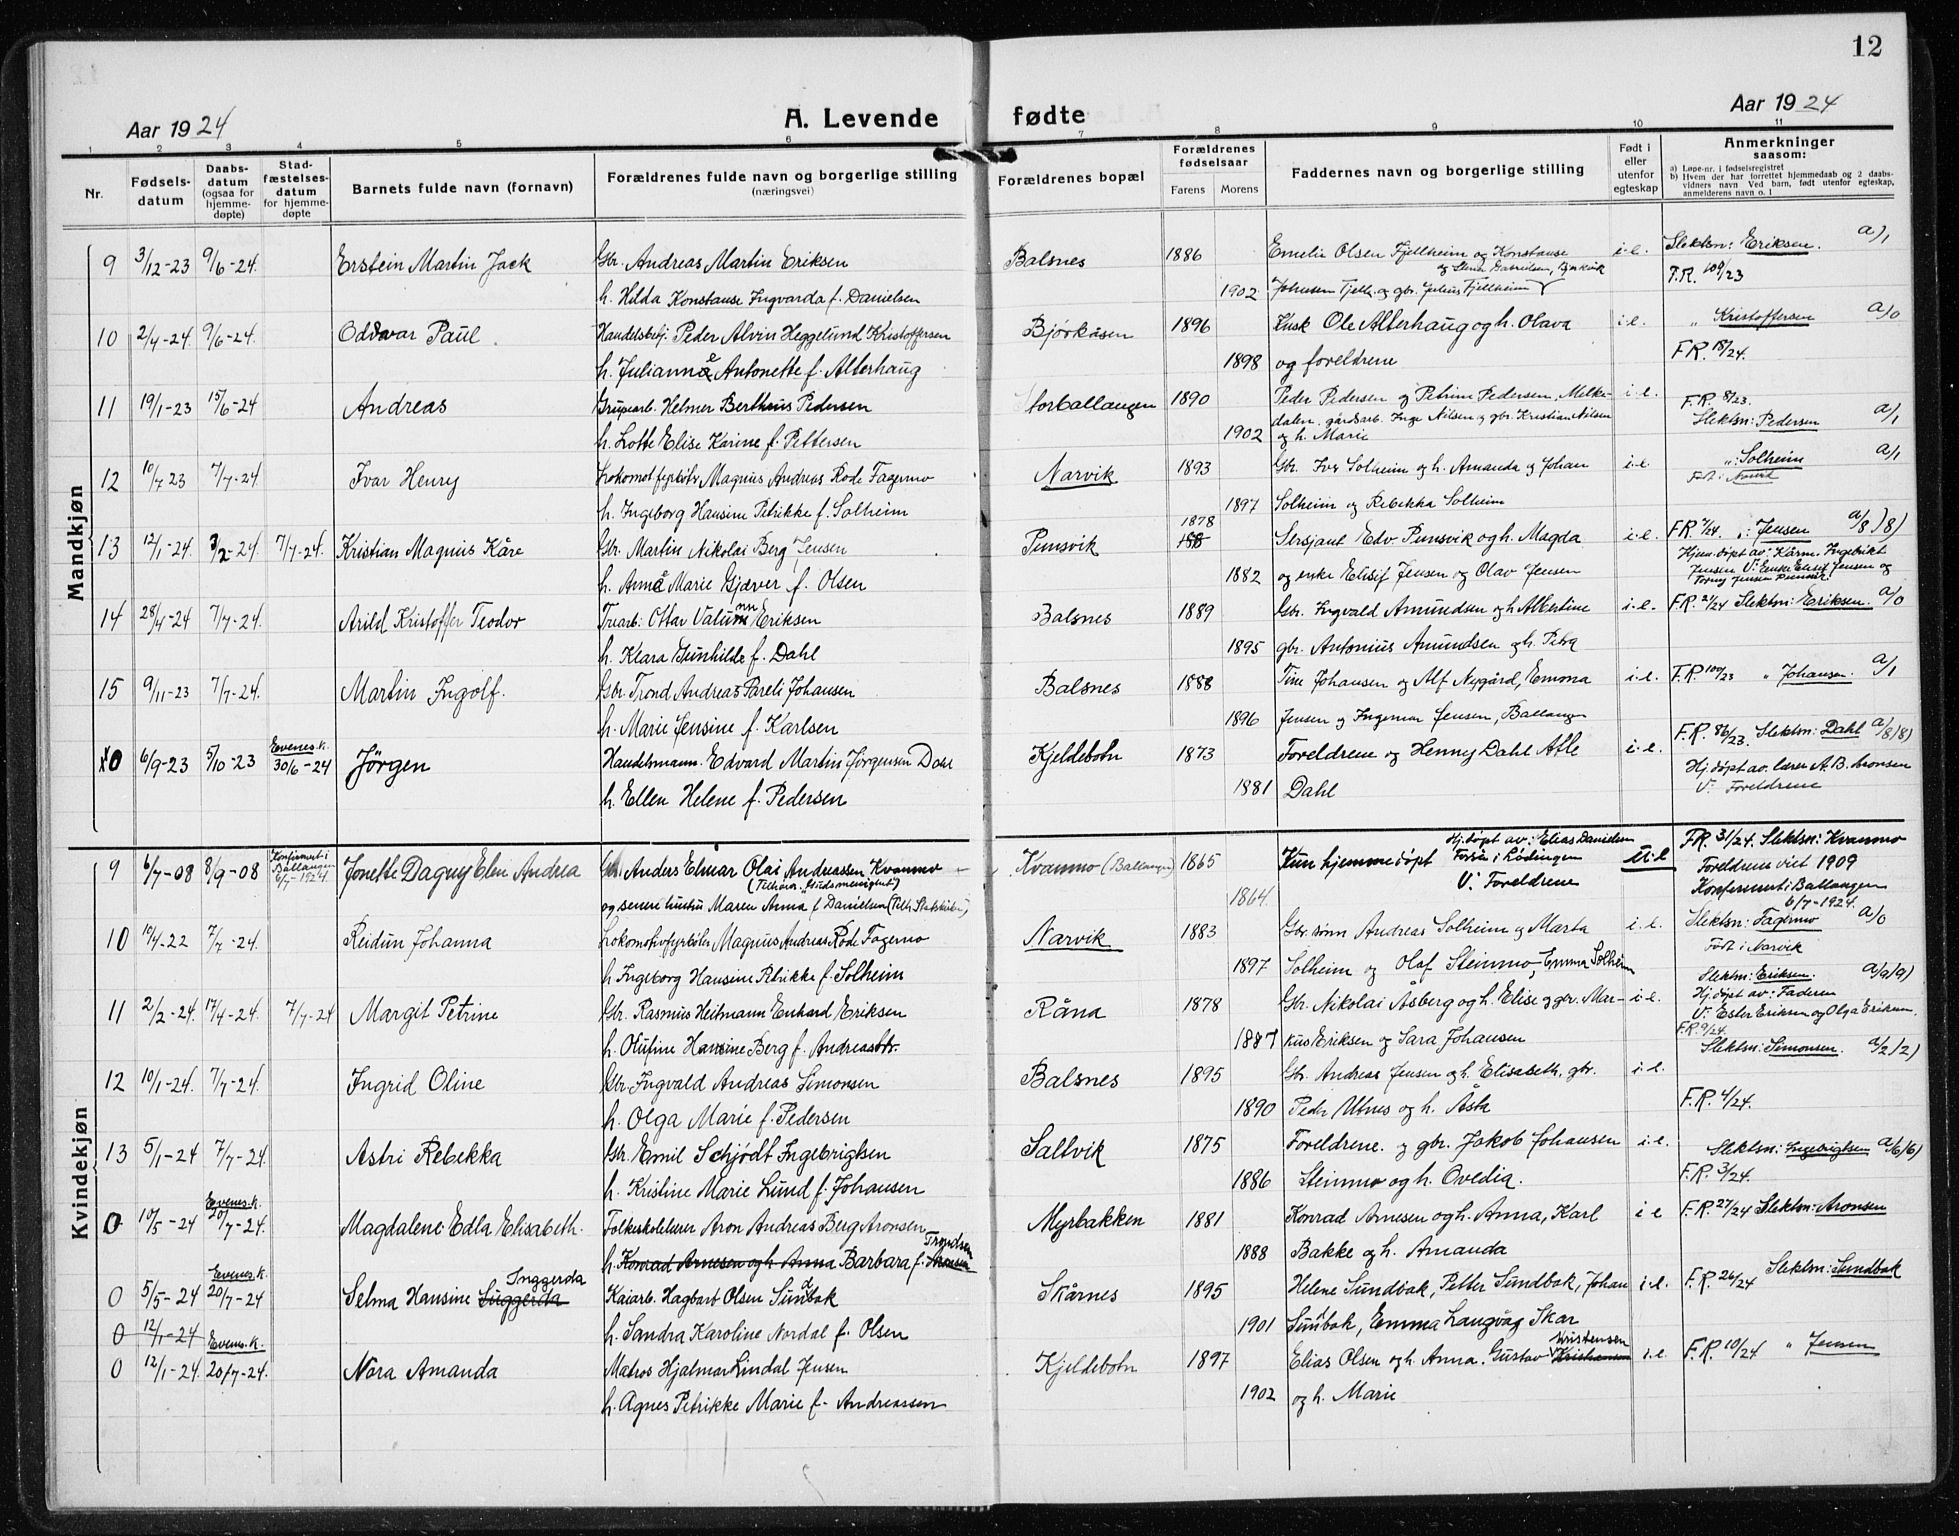 12
Aar 1924
A. Levende fødte
Aar 1924
1 2 3 4 5 6 7 8 9 10 11
Nr.
Fødsels-
datum
Daabs-
datum
(ogsaa for
hjemme-
døpte)
Stad-
fæstelses-
datum
for hjemme-
døpte
Barnets fulde navn (fornavn)
Forældrenes fulde navn og borgerlige stilling
(næringsvei)
Forældrenes bopæl
Forældrenes
fødselsaar
Farens Morens
Faddernes navn og borgerlige stilling
Født i
eller
utenfor
egteskap
Anmerkninger
saasom:
a) Løpe-nr. i fødselsregistret
b) Hvem der har forrettet hjemmedaab og 2 daabs-
vidners navn Ved barn, født utenfor egteskap,
anmelderens navn o. l
Mandkjøn
9 3/12-23 9/6-24. Erstein Martin Jack Gbr. Andreas Martin Eriksen Balsnes 1886 Emelie Olsen Fjellheim og Konstanse i-e. Slektsn: Eriksen. a/1
h. Hilda Konstanse Ingvarda f. Danielsen 1902 Johansen Fjellh. og gbr. Julius Fjellheim F.R. 109/23
10 2/4-24. 9/6-24. Oddvar Paul Handelsbetj. Peder Alvin Heggelund Kristoffersen Bjørkåsen 1896 Kusk Ole Alterhaug og h. Olava i-e. " Kristoffersen a/0
h. Julianne Antonette f. Alterhaug 1898 og foreldrene F.R. 18/24.
11 19/1-23 15/6-24 Andreas Grubearb. Helmer Bertheus Pedersen Storballangen 1890 Peder Pedersen og Petrine Pedersen, Melke- i-e. F.R. 8/23.
dalen. gårdsarb. Inge Nilsen og gbr. Kristian Nilsen Slektsn: Pedersen a/1
h. Lotte Elise Karine f. Pettersen 1902 og h. Marie
12 10/7 23 7/7-24. Ivar Henry Lokomotfyrbøter Magnus Andreas Rode Fagermo Narvik 1893 Gbr. Ivar Solheim og h. Amanda og Johan i-e. ": Solheim a/1
Født i Narvik
h. Ingeborg Hansine Petrikke f. Solheim 1897 Solheim og Rebekka Solheim
13 12/1-24. 3/2-24. 7/7-24. Kristian Magnus Kåre Gbr. Martin Nikolai Berg Jensen Punsvik 1878 Sersjant Edv. Punsvik og h. Magda i-e. F.R. 7/24 ": Jensen a/8)8)
h. Anna Marie Gjæver f. Olsen 1882 og enke Elisif Jensen og Olav Jensen Hjem. døpt av: Kårm. Ingebrikt
Jensen V: Enke Elisif Jensen og
14 28/4-24 7/7-24. Arild Kristoffer Teodor Truarb: Ottar Valumnn Eriksen Balsnes 1889 Gbr. Ingvald Amundsen og h. Albertine i-e. F.R. 21/24 Slektsn: Eriksen. a/0
h. Klara Gunhilde f. Dahl 1895 gbr. Antonius Amundsen og h. Petra
15 9/11-23 7/7-24. Martin Ingolf. Gbr. Trond Andreas Pareli Johansen Balsnes 1888 Tine Johansen og Alf Nygård, Emona i-e. F.R. 100/23 " Johansen. a/1
h. Marie Jensine f. Karlsen 1896 Jensen og Ingemar Jensen, Ballangen
0 6/9-23 5/10-23 Evenes.k. 30/6-24 Jørgen Handelsmann. Edvard Martin Jørgensen Dahl Kjeldebotn 1873 Foreldrene og Henny Dahl Atle i-e. F.R. 86/23. Slektsn: Dahl a/8/8)
h. Ellen Helene f. Pedersen 1881 Dahl Hj. døpt av. lærer A. B. Aronsen
V: Foreldrene
Kvindekjøn
9 6/7-08 8/9-08 Konfirmert i Ballangen 6/7-1924. Jonette Dagny Elen Andrea Anders Elmar Olai Andreassen Kvanmo Kvanmo (Ballangen) 1865 Kun hjemmedøpt Hj. døpt av: Elias Danielsen u-e F.R. 31/24. Slektsn: Kvanmo
V: Foreldrene
og senere hustru Maren Anna f Danielsen 1864. Foreldrene viet 1909
Konfirmert i Ballangen
6/7-1924.
10 10/4-22 7/7-24. Reidun Johanna Lokomotivfyrbøter Magnus Andreas Rode Fagermo Narvik 1883 Gbr. sønn Andreas Solheim og Marta i-e. Slektsn: Fagermo a/0
h. Ingeborg Hansine Petrikke f. Solheim 1897 Solheim og Olaf Steinmo, Emma Solheim Født i Narvik
11 2/2-24. 17/4-24. 7/7-24 Margit Petrine Gbr. Rasmus Heitmann Enhard Eriksen Råna 1878 Gbr. Nikolai Åsberg og h. Elise og gbr. Mar- i-e. Slektsn: Eriksen. a/9/9)
Hj. døpt av: Faderen
V: Ester Eriksen og Olga Eriksen.
h. Olufine Hansine Berg f. Andreasdtr. 1887 kus Eriksen og Sara Johansen F.R. 9/24.
12 10/1-24. 7/7-24. Ingrid Oline Gbr. Ingvald Andreas Simonsen Balsnes 1895 Gbr. Andreas Jensen og h. Elisabeth, gbr. i-e. Slektsn: Simonsen. a/2/2)
h. Olga Marie f. Pedersen 1890 Peder Utnes og h. Åsta F.R. 4/24.
13 5/1-24 7/7-24. Astri Rebekka Gbr. Emil Schjødt Ingebrigtsen Saltvik 1875 Foreldrene. og gbr. Jakob Johansen i-e. Slektsn: Ingebrigtsen a/6/6)
h. Kristine Marie Lund f. Johansen 1886 Steinmo og h. Ovedia. F.R. 3/24.
0 10/5-24 Evenes.k. 20/7-24. Magdalene Edla Elisabeth. Folkeskolelærer Aron Andreas Berg Aronsen Myrbakken 1881 Konrad Arnesen og h. Anna, Karl i-e F.R. 27/24 Slektsn: Aronsen
h. Konrad Arnesen og h. Anna Barbara f. Aronsen Trondsen 1888 Bakke og h. Amanda
0 5/5-24 Evenes.k. 20/7-24 Selma Hansine Suggerda Inggerda Kaiarb. Hagbart Olsen Sundbak Skårnes 1895 Helene Sundbak, Petter Sundbak, Johan i-e. F.R. 26/24 Slektsn: Sundbak
0 12/1-24 Evenes.k. h. Sandra Karoline Nordal f. Olsen 1901 Sundbak, Emma Langvåg Skar
0 12/1-24. 20/7-24. Nora Amanda Matros Hjalmar Lindal Jensen Kjeldebotn 1897 Elias Olsen og h. Anna. Gustav Kristensen i-e. F.R. 10/24 " Jensen
h. Agnes Petrikke Marie f. Andreassen 1902 og h. Marie